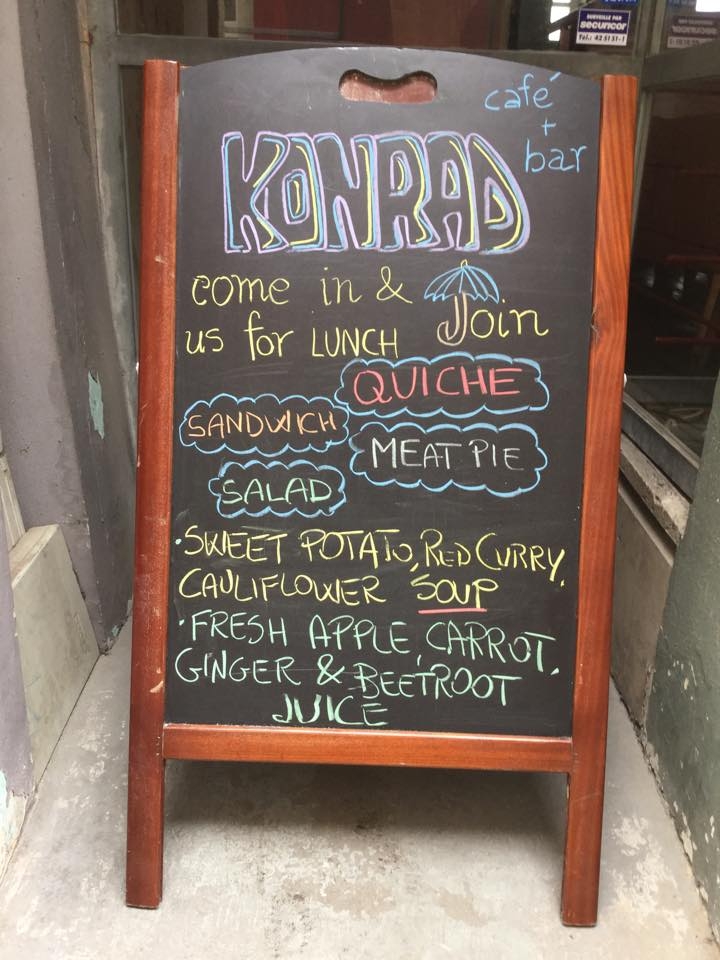 SURVEILLE PAR
securicor
Tel.: 42 51 51-1
café
+
bar
KONRAD
come in & Join
us for LUNCH
QUICHE
SANDWICH
MEAT PIE
SALAD
·SWEET POTATO, RED CURRY,
CAULIFLOWER SOUP
·FRESH APPLE, CARROT,
GINGER & BEETROOT
JUICE